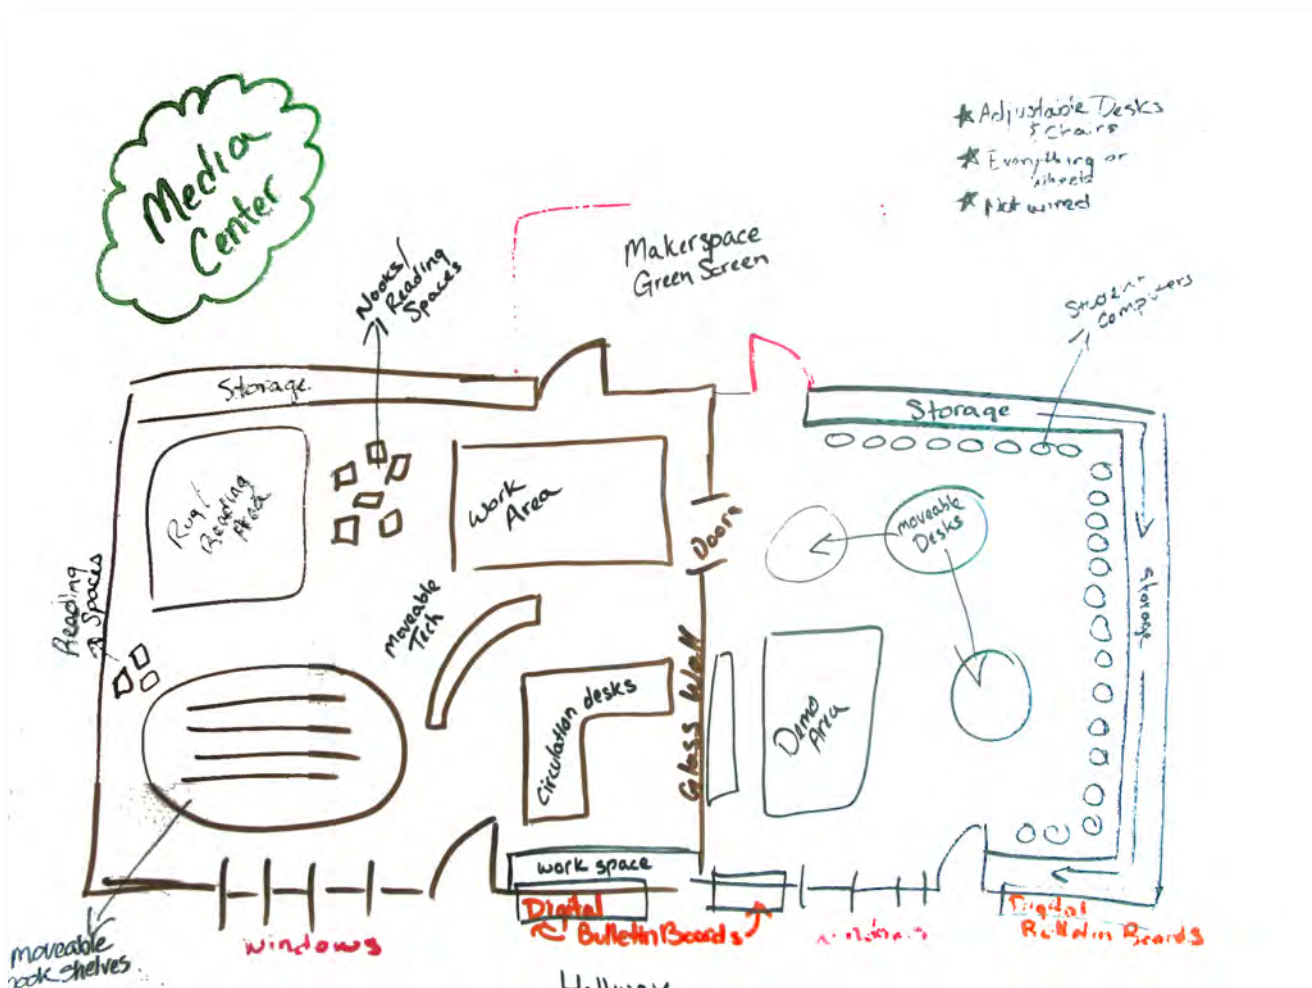 Media
Center
★ Adjustable Desks
& Chairs
★ Everything on
wheels
★ Not wired
Makerspace
Green Screen
Nooks/
Reading
Spaces
Student
Computers
Storage
Storage
Rug/
Reading
Area
Work
Area
Doors
moveable
Desks
Storage
Reading
Spaces
Moveable
Tech
Circulation desks
Glass Wall
Demo
Area
work space
Digital
Bulletin Boards
windows
Digital
Bulletin Boards
moveable
book shelves
Hallway